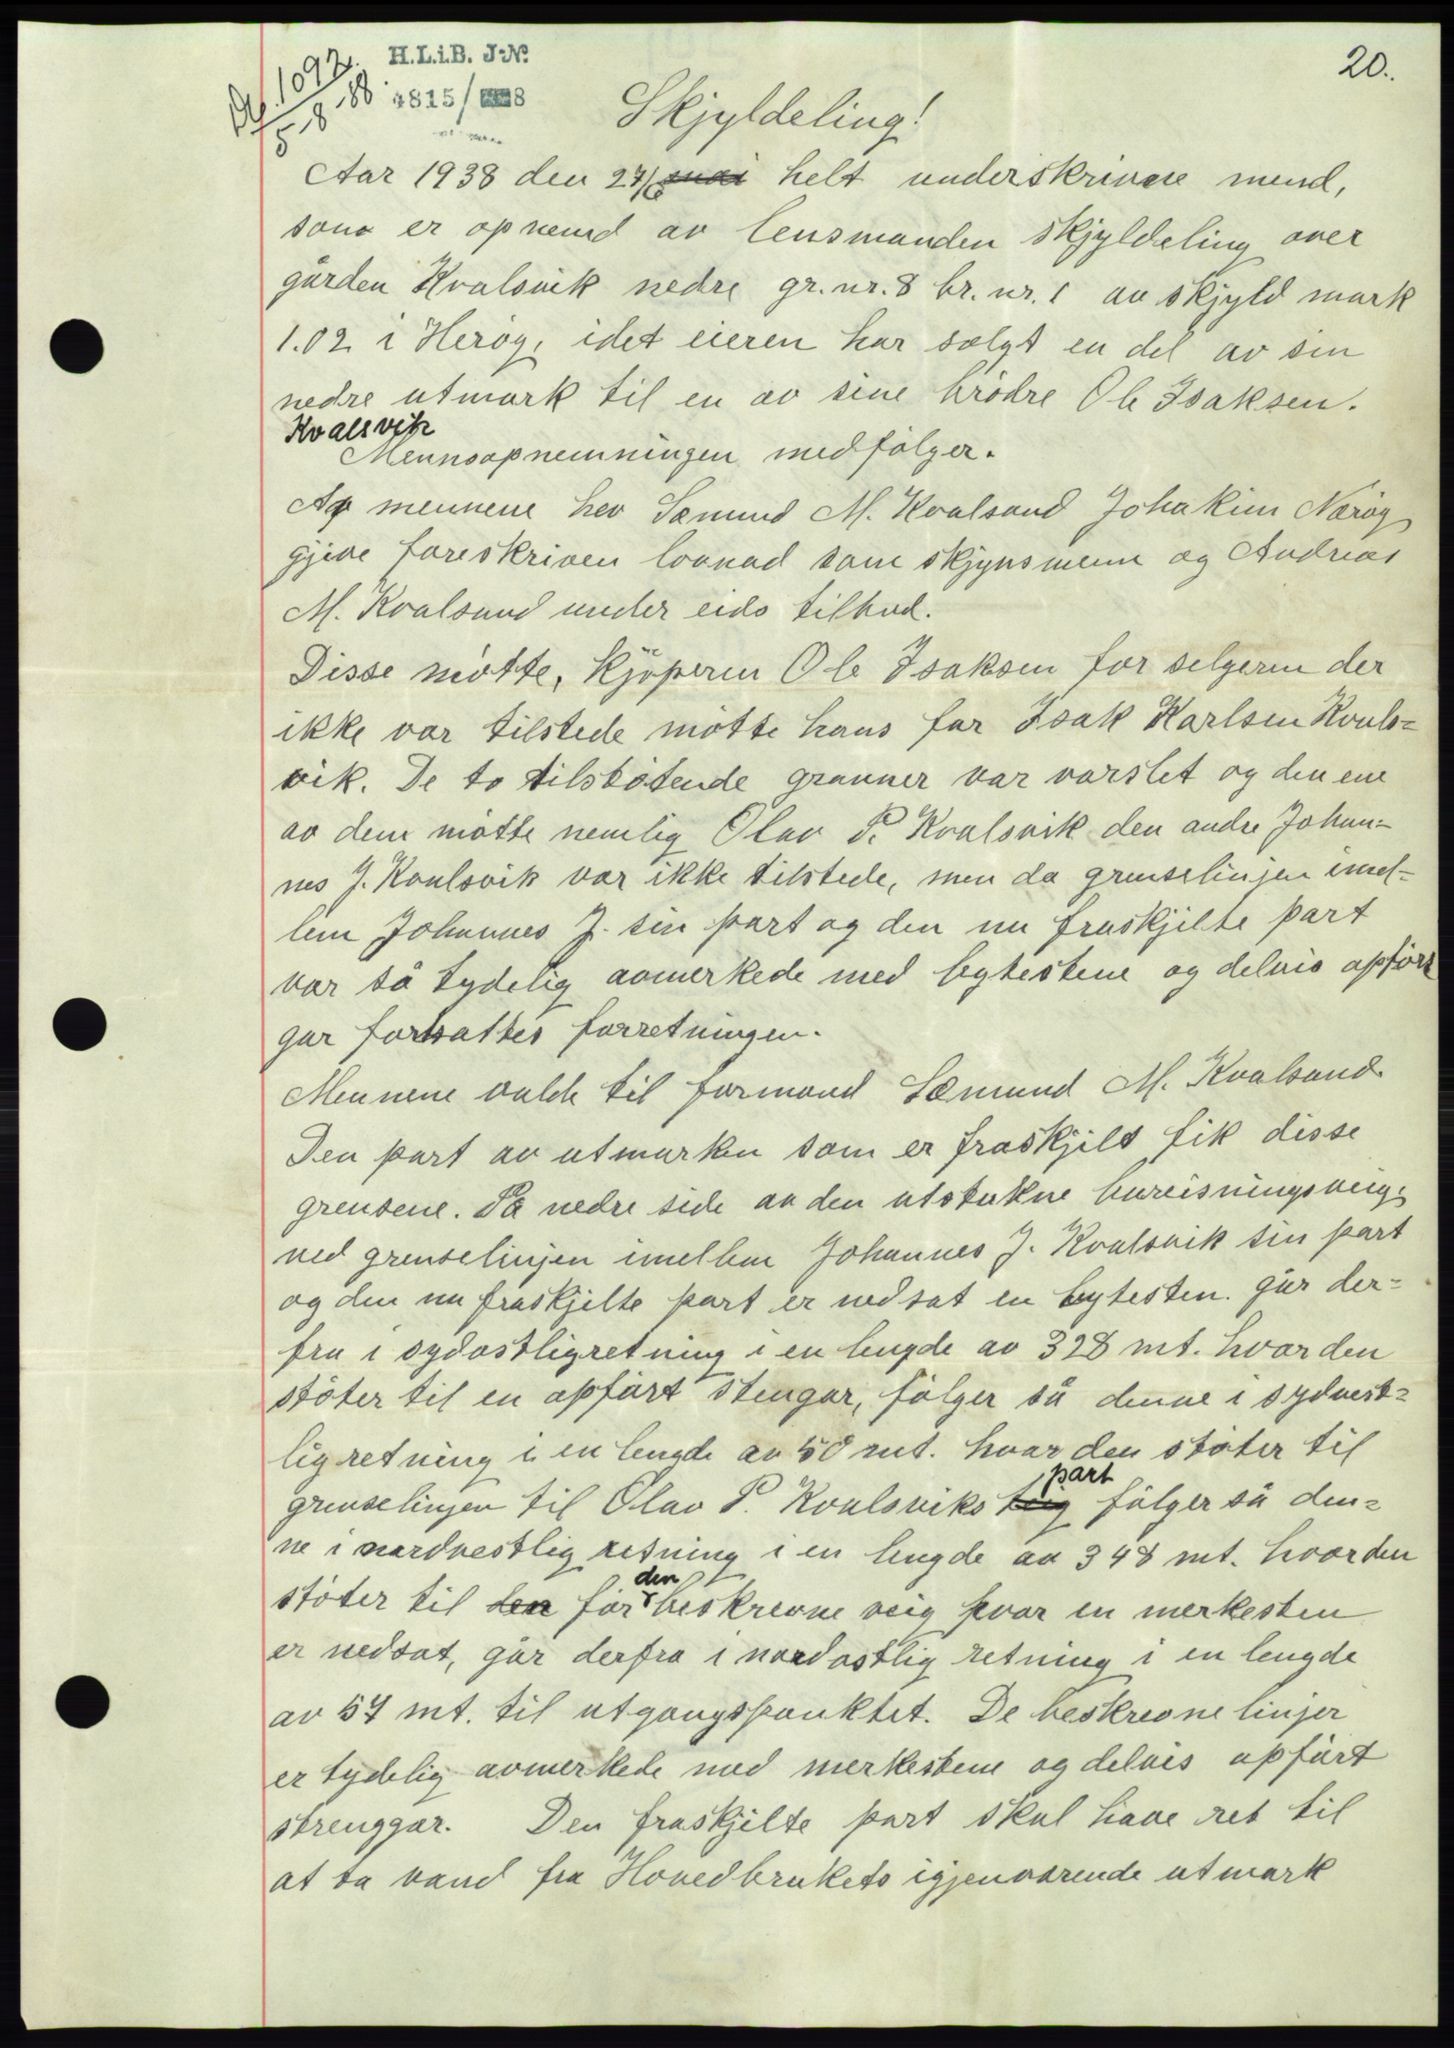 20.
H.L.i.B. J-Nr.
4815/ 8
1092
5-8-88
Skjyldeling!
Aar 1938 den 27/6 mai helt underskrivne mend,
som er opnemd av lensmanden skjyldeling over
gården Kvalsvik nedre gr. nr. 8 br. nr. 1 av skjyld mark
1.02 i Herøy, idet eieren har solgt en del av sin
nedre utmark til en av sine brødre Ole Isaksen.
Kvalsvik
Mennsopnemningen medfølger.
Av mennene hev Sæmund M. Kvalsund Johakim Nærøy
gjeve foreskriven lovnad som skjynsmenn og Andreas
M. Kvalsund under eids tilbud.
Disse møtte, kjøperen Ole Isaksen for selgeren der
ikke var tilstede møtte hans far Isak Karlsen Kvals=
vik. De to tilstøtende granner var varslet og den ene
av dem møtte nemlig Olav P. Kvalsvik den andre Johan=
nes J. Kvalsvik var ikke tilstede, men da grenselinjen imel=
lem Johannes J. sin part og den nu fraskjilte part
var så tydelig avmerkede med bytestene og delvis opført
gar fortsattes forretningen.
Mennene valde til formand Sæmund M. Kvalsund.
Den part av utmarken som er fraskjilt fik disse
grensene. På nedre side av den utstukne bureisningsveig,
ved grenselinjen imellem Johannes J. Kvalsvik sin part
og den nu fraskjilte part er nedsat en bytesten. går der=
fra i sydostligretning i en lengde av 328 mt. hvor den
støter til en opført stengar, følger så denne i sydvest=
lig retning i en lengde av 50 mt. hvor den støter til
grenselinjen til Olav P. Kvalsviks teig part følger så den=
ne i nordvestlig retning i en lengde av 348 mt. hvor den
støter til den før den beskrevne veig hvor en merkesten
er nedsat, går derfra i nordostlig retning i en lengde
av 57 mt. til utgangspunktet. De beskrevne linjer
er tydelig avmerkede med merkestene og delvis opført
strenggar. Den fraskjilte part skal have ret til
at ta vand fra Hovedbrukets igjenværende utmark